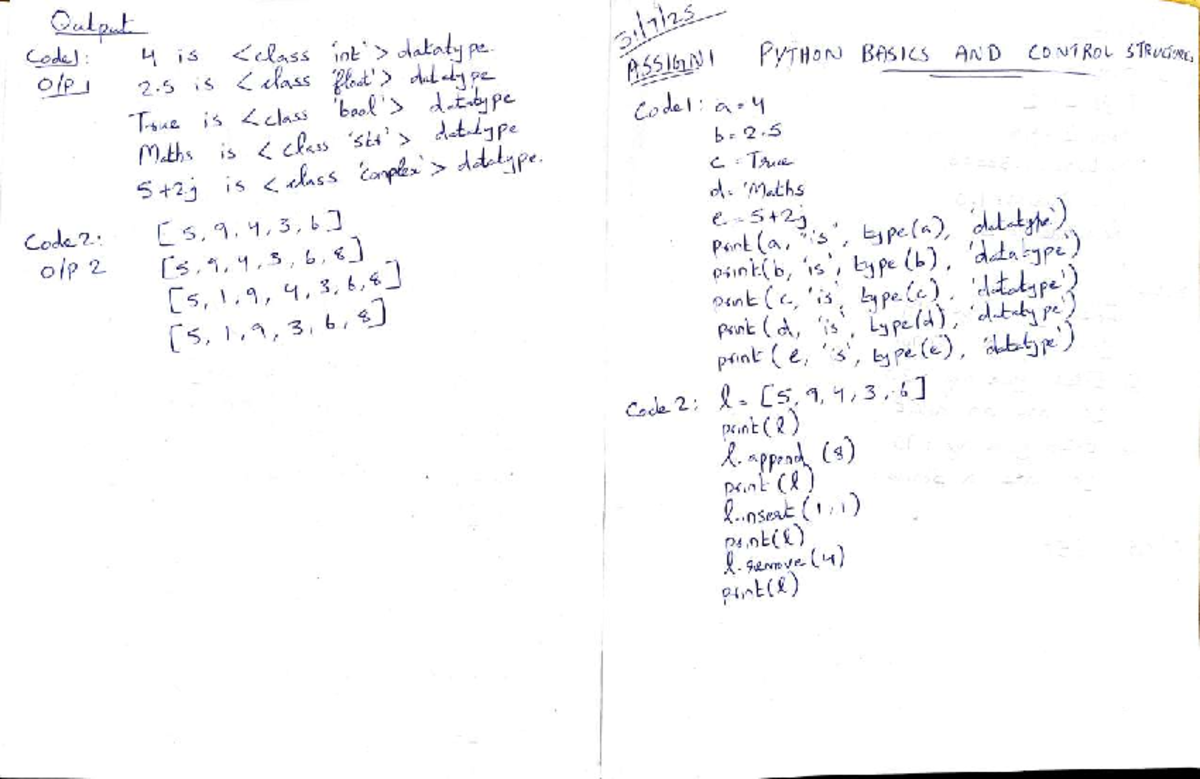 Output
Code1: 4 is <class 'int'> datatype.
O/P 1 2.5 is <class 'float'> datatype
True is <class 'bool'> datatype
Maths is <class 'str'> datatype
5+2j is <class 'complex'> datatype.
Code 2: [5, 9, 4, 3, 6]
O/P 2 [5, 9, 4, 3, 6, 8]
[5, 1, 9, 4, 3, 6, 8]
[5, 1, 9, 3, 6, 8]
31/7/25
ASSIGN 1 PYTHON BASICS AND CONTROL STRUCTURES
Code1: a=4
b=2.5
c=True
d='Maths
e=5+2j
print(a, "is", type(a), 'datatype')
print(b, 'is', type(b), 'datatype')
print(c, 'is, type(c), 'datatype')
print(d, 'is', type(d), 'datatype')
print(e, 'is', type(e), 'datatype')
Code 2: l=[5, 9, 4, 3, 6]
print(l)
l.append(8)
print(l)
l.insert(1,1)
print(l)
l.remove(4)
print(l)